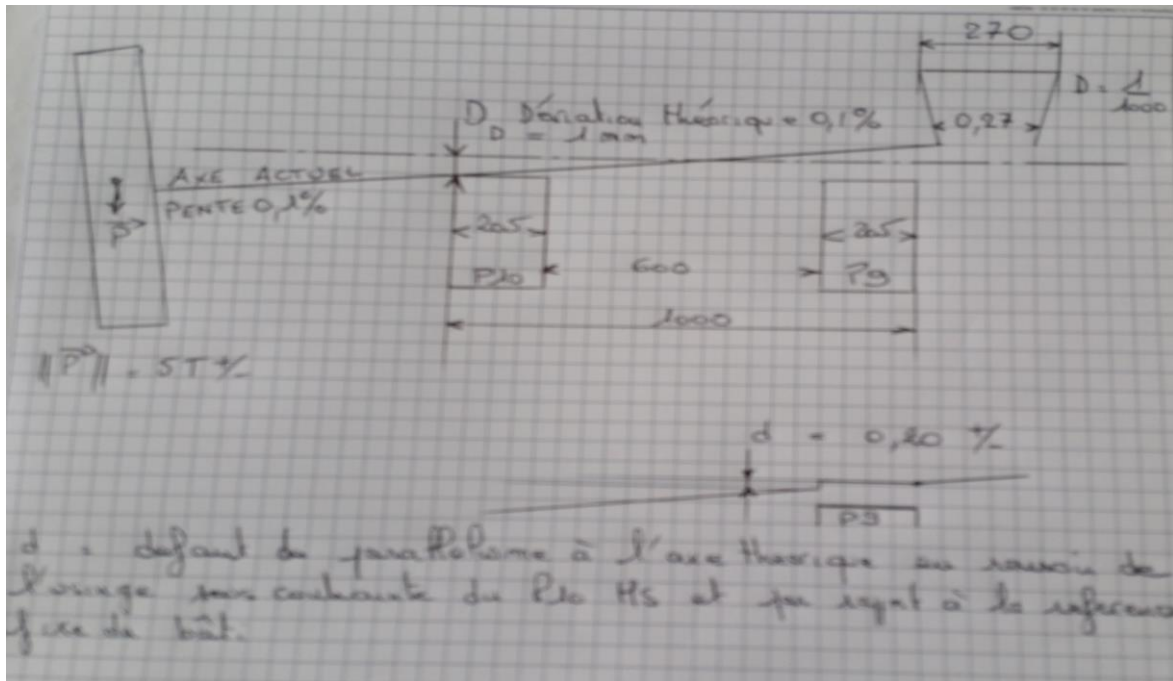 270
D = 1/1000
D Déviation théorique 0,1%
D = 1 mm
0,27
AXE ACTUEL
PENTE 0,1%
P
205
205
P10
600
P9
1000
||P|| = 5T +/-
d = 0,20 +/-
P9
d = défaut de parallélisme à l'axe théorique en raison de
l'usinage sous contrainte du P10 HS et par rapport à la référence
fixe du bât.